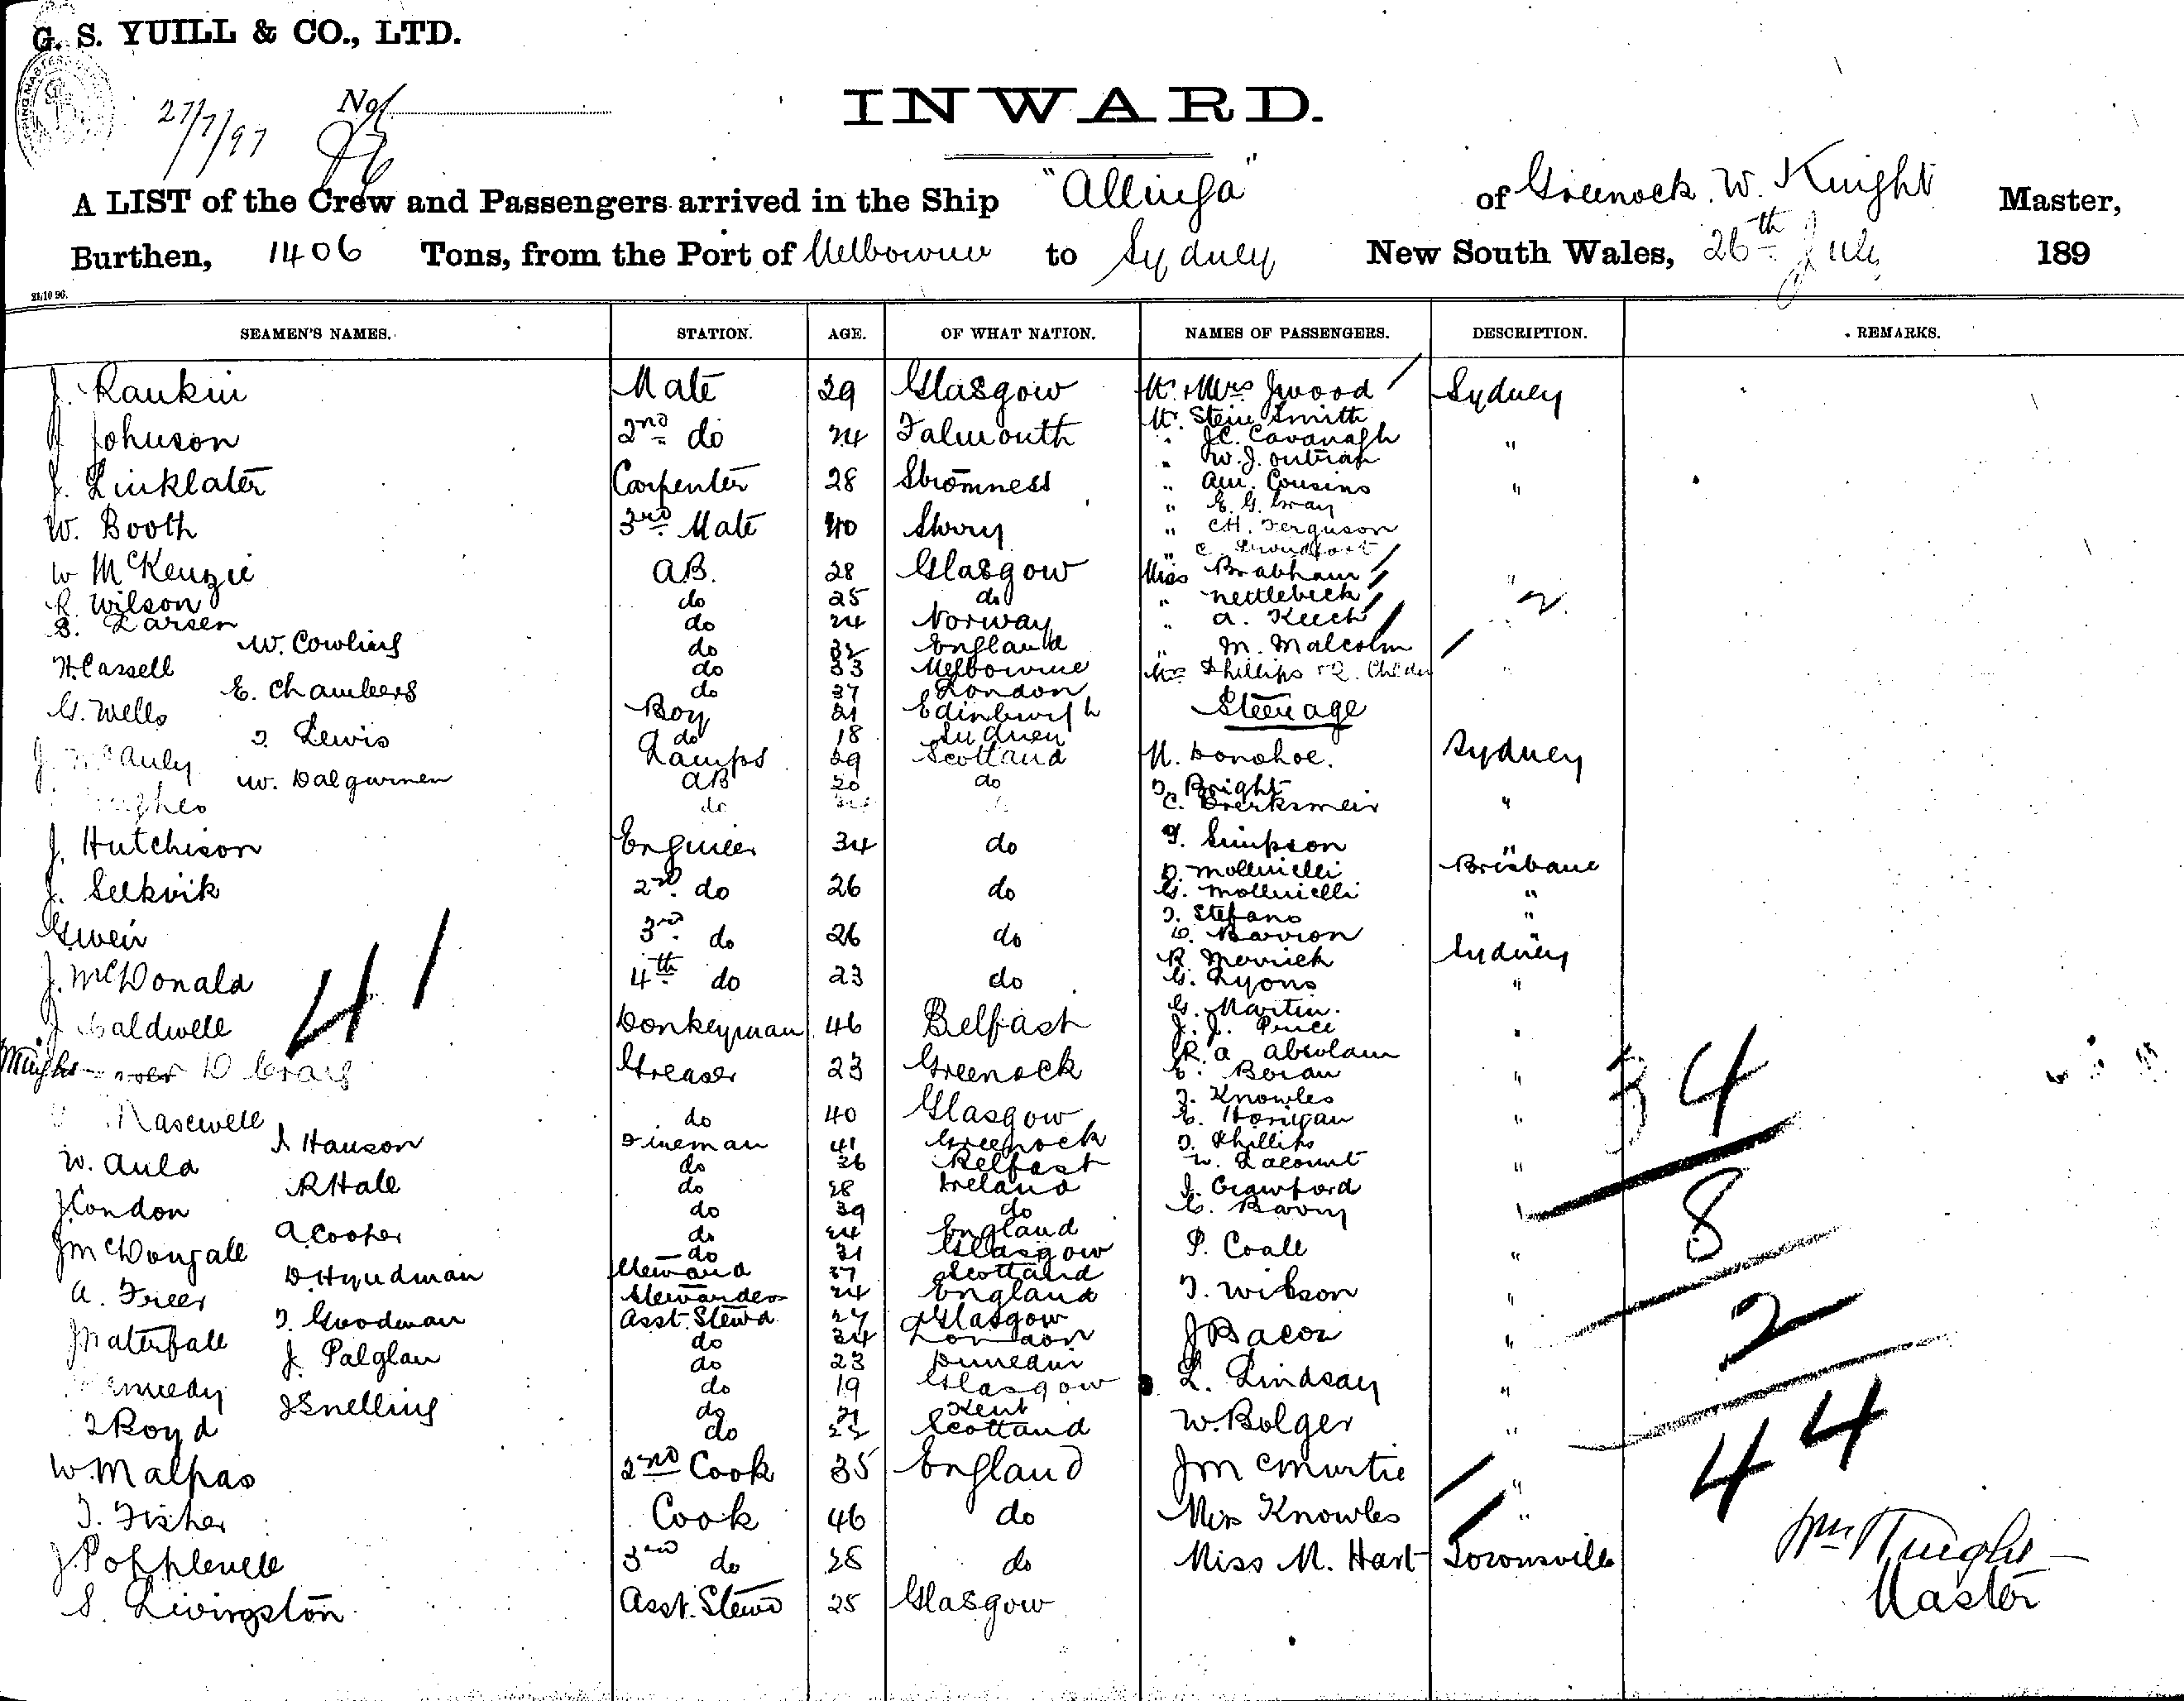 G. S. YUILL & CO., LTD.
27/7/97 No.
INWARD.
A LIST of the Crew and Passengers arrived in the Ship "Allinga" of Greenock. W. Knight Master,
Burthen, 1406 Tons, from the Port of Melbourne to Sydney New South Wales, 26th July 189
21/10 96.
SEAMEN'S NAMES. STATION. AGE. OF WHAT NATION. NAMES OF PASSENGERS. DESCRIPTION. REMARKS.
J. Rankin Mate 29 Glasgow Mr. & Mrs Jwood Sydney
Mr. Stein Smith
J Johnson 2nd do 24 Falmouth " J.C. Cavanagh "
" W. J.
J. Linklater Carpenter 28 Stromness " Am. Cousins "
" E. G. Gray
W. Booth 3rd Mate 40 " C.H. Ferguson
" C.
W McKenzie A.B. 28 Glasgow Miss Brabham "
R. Wilson do 25 do " Nettlebeck 2
S. Larsen do 24 Norway " A. Keech
W. Cowling do 32 England " M. Malcolm
H. Cassell do 33 Melbourne Mrs Phillips & 2. Childn "
E. Chambers do 37 London
G. Wells Boy 21 Edinburgh Steerage
J. Lewis do 18 Sydney
J. McAuly Lamps 29 Scotland M. Donohoe. Sydney
W. Dalgarnen AB 20 do J. Bright
do C. Brerksmeir "
J. Hutchison Engineer 34 do J. Simpson
D. Mollinelli Brisbane
J. Selkvik 2nd do 26 do G. Mollinelli "
J. Stefano "
G Weir 3rd do 26 do C. Barrion "
R Merrick Sydney
J. McDonald 4th do 23 do G. Lyons "
41
G. Martin.
J Caldwell Donkeyman 46 Belfast J. J. Price "
R. A Absolam
D Craig Greaser 23 Greenock C. Boran "
J. Knowles 34
Masewell do 40 Glasgow E. Horigan "
J Hanson Fireman 41 Greenock J. Phillips
W. Auld do 36 Belfast W. Lacount "
R Hale do 28 Ireland J. Crawford
J London do 39 do C. Barry 8
A Cooper do 24 England
J McDougall do 31 Glasgow P. Coall "
D. Hyndman Steward 37 Scotland
A. Freer Stewardess 24 England J. Wilson "
J. Goodman Asst. Stewd 27 Glasgow 2
J Waterfall do 34 London J Bacon "
J. Palglan do 23 Dunedin
Kennedy do 19 Glasgow L. Lindsay "
J Snelling do 21 Kent
J Boyd do 22 Scotland W. Bolger "
W. Malpas 2nd Cook 35 England J McMurtie " 44
J. Fisher Cook 46 do Miss Knowles "
J. Popplewell 3rd do 28 do Miss M. Hart Townsville Wm Knight
S. Livingston Asst. Stewd 25 Glasgow Master